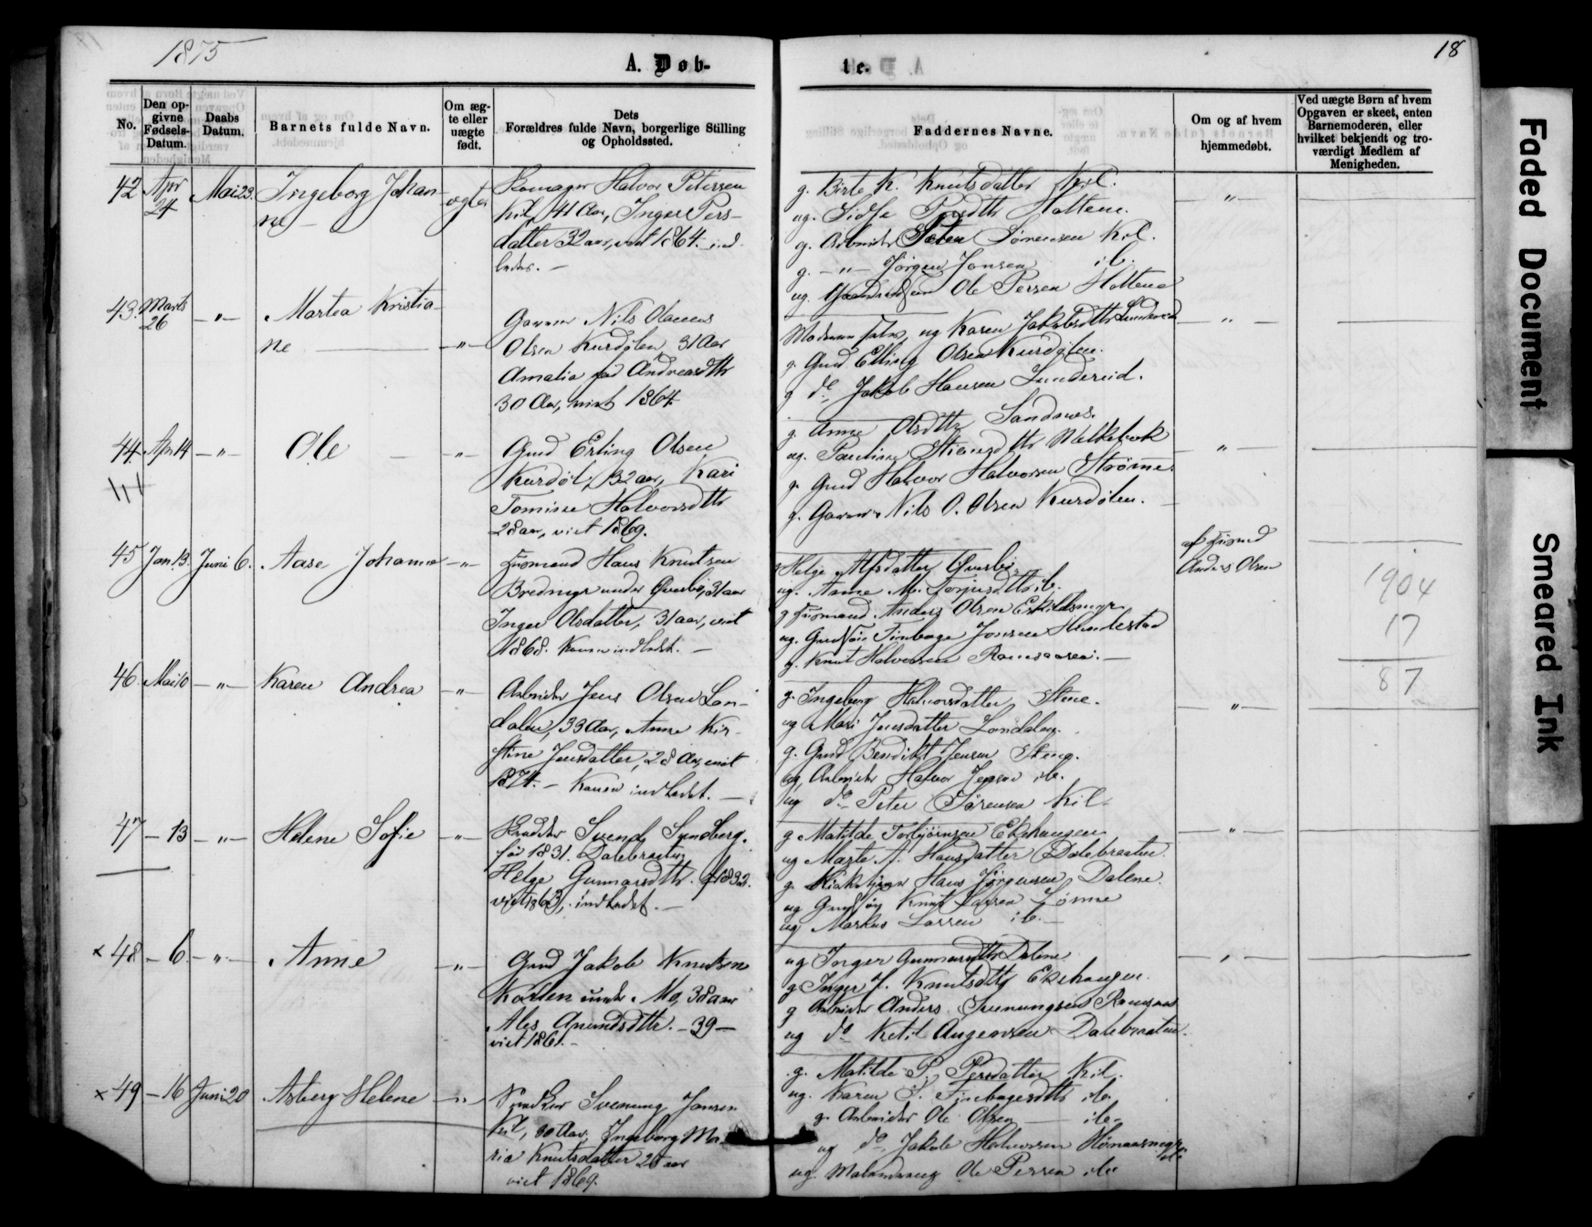 1875
18
A. Døb-
te.
No.
Den op-
givne
Fødsels-
Datum.
Daabs
Datum.
Barnets fulde Navn.
Om æg-
te eller
uægte
født.
Dets
Forældres fulde Navn, borgerlige Stilling
og Opholdssted.
Faddernes Navne.
Om og af hvem
hjemmedøbt.
Ved uægte Børn af hvem
Opgaven er skeet, enten
Barnemoderen, eller
hvilket bekjendt og tro-
værdigt Medlem af
Menigheden.
42 Apr 24 Mai 23. Ingeborg Johan-
ne
Halvor Petersen
Kil, 41 Aar, Inger Pers-
datter 32 aar, viet 1864. ind-
ledet. —
g. Birte K. Knutsdatter Kil.
ug. Sidse Holtene.
g. Arbeider Peter Sørensen Kil.
g. — " — Jørgen Jonsen ib.
ug. Ole Persen Holtene
43. Marts 26 — " — Martea Kristia-
ne — " —
Garver Nils Olaus
Olsen Kurdølen 31 Aar
Amalia Andreasdtr
30 Aar, viet 1864.
Karen Jakobsdtr Lundereid
g. Gmd Elling Olsen Kurdølen.
g do Jakob Hansen Lundereid.
44 Apr 14 — " — Ole — " —
Gmd Erling Olsen
Kurdøl, 32 aar, Kari
Tomine Halvorsdtr
28 aar, viet 1869.
g. Anne Olsdtr Sandnes.
g. Gmd Halvor Halvorsen Strømme
g. Garver Nils O. Olsen Kurdølen.
45 Jan 13. Juni 6. Aase Johanne — " —
Husmand Hans Knutsen
Bredmyr under Øverbø, 31 aar
Inger Olsdatter, 31 aar, viet
1868. Konen indledet. —
Helge Alfsdatter Øverbø
ug. Anne M. Torjusdtr ib.
g Husmand Anders Olsen Eskildsmyr
ug. Jonsen Hundestad
g. Knut Halvorsen Ramsaasen. —
af Husmd
Anders Olsen
1904
17
87
46. Mai 10 — " — Karen Andrea — " —
Arbeider Jens Olsen Lon-
dalen, 33 Aar, Anne Kir-
stine Jensdatter, 28 Aar, viet
1874. — Konen indledet. —
g. Ingeborg Halvorsdatter Stene.
ug Mari Jensdatter Londalen.
g. Gmd Bendikt Jensen Steng.
ug Arbeider Halvor Jensen ib.
ug do Peter Sørensen Kil
47 — 13 — " — Helene Sofie — " —
Svend Syndberg.
fød 1831. Dalebraaten
Helge Gunnarsdtr. f. 1832.
viet 1863, indledet. —
g Matilde Torbjørnsen Ekehaugen
ug Marte A. Hansdatter Dalebraaten
g. Hans Jørgensen Dalene.
ug Knut Larsen
ug Markus Larsen ib. —
x 48 — 6. — " — Anne — " —
Gmd Jakob Knutsen
under Mo, 38 aar
Ales Anundsdtr. — 39 —
viet 1861. —
ug Inger Gunnarsdtr Dalene
g Inger J. Knutsdtr Ekehaugen.
g Arbeider Anders Ramsaas
ug do Ketil Aagesen Dalebraaten.
x 49 — 16 Juni 20 Asberg Helene — " —
Svenung Jansen
Kil, 30 Aar, Ingeborg Ma-
ria Knutsdatter 26 aar
viet 1869.
g. Matilde P. Persdatter Kil.
ug. Karen ib.
g. Arbeider Ole Olsen ib.
ug do Jakob Halvorsen
ug. Ole Persen ib.
Faded Document
Smeared Ink